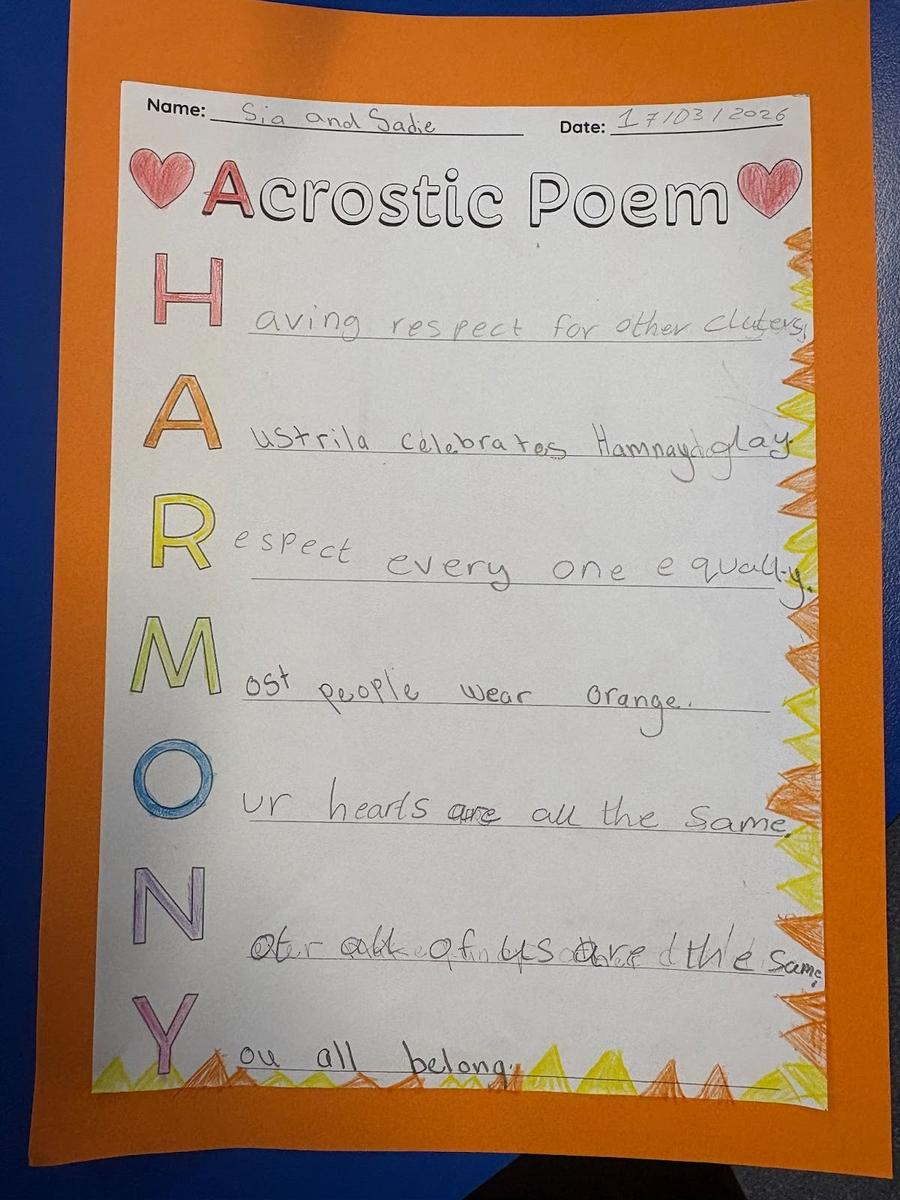 Name: Sia and Sadie Date: 17/03/2026
Acrostic Poem
Having respect for other cluters,
Austrila celebrates
Respect every one equally.
Most people wear orange.
Our hearts are all the same.
Not all of us are the same.
You all belong.